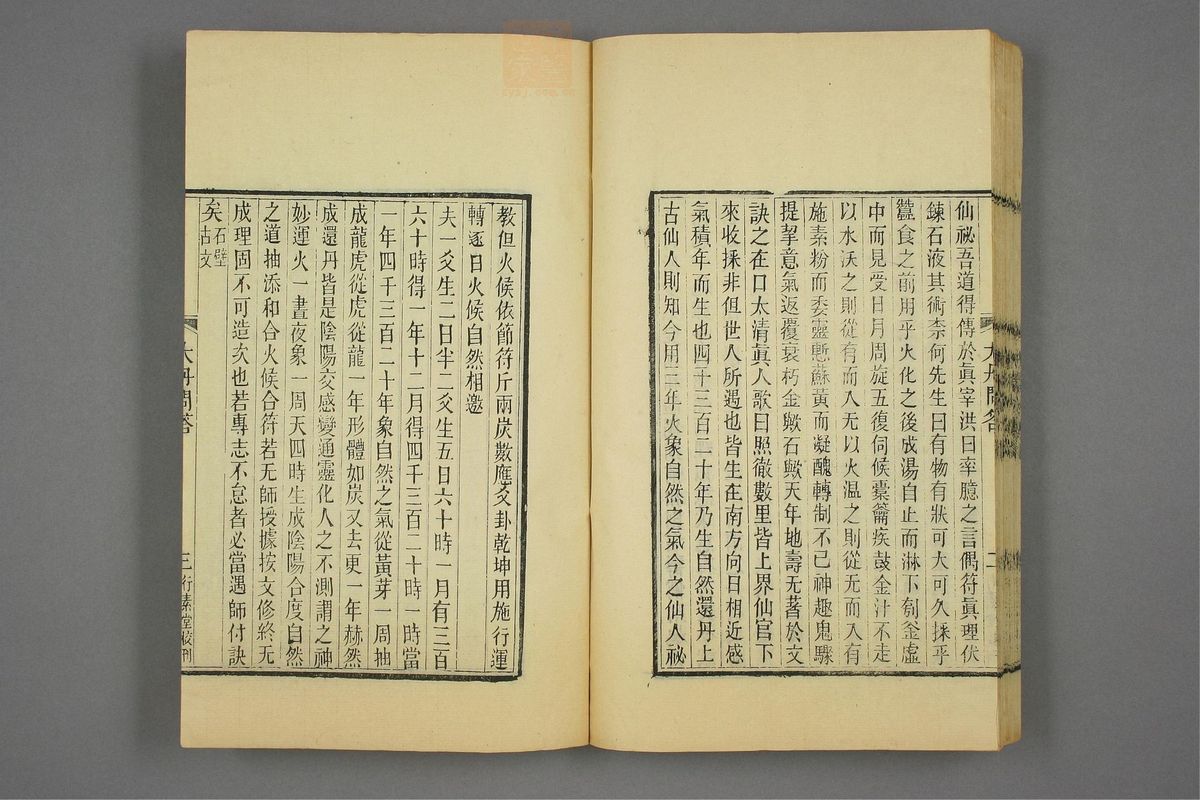 仙祕吾道得傳於眞宰洪曰率臆之言偶符眞理伏
鍊石液其術柰何先生曰有物有狀可大可久採乎
蠶食之前用乎火化之後成湯自止而淋下刳釜虛
中而見受日月周旋五復伺候橐籥疾鼓金汁不走
以水沃之則從有而入无以火温之則從无而入有
施素粉而委靈慙蘇黃而凝醜轉制不已神趣鬼驟
提挈意氣返覆衰朽金歟石歟天年地壽无蓍於文
訣之在口太清眞人歌曰照徹數里皆上界仙官下
來收採非但世人所遇也皆生在南方向日相近感
氣積年而生也四千三百二十年乃生自然還丹上
古仙人則知今用三年火象自然之氣今之仙人祕
大丹問答
二
教但火候依節符斤兩炭數應爻卦乾坤用施行運
轉逐日火候自然相邀
夫一爻生二日半二爻生五日六十時一月有三百
六十時得一年十二月得四千三百二十時一時當
一年四千三百二十年象自然之氣從黃芽一周抽
成龍虎從虎從龍一年形體如炭又去更一年赫然
成還丹皆是陰陽交感變通靈化人之不測謂之神
妙運火一晝夜象一周天四時生成陰陽合度自然
之道抽添和合火候合符若无師授據按文修終无
成理固不可造次也若專志不怠者必當遇師付訣
矣石壁古文
大丹問答
三
行素堂校刊